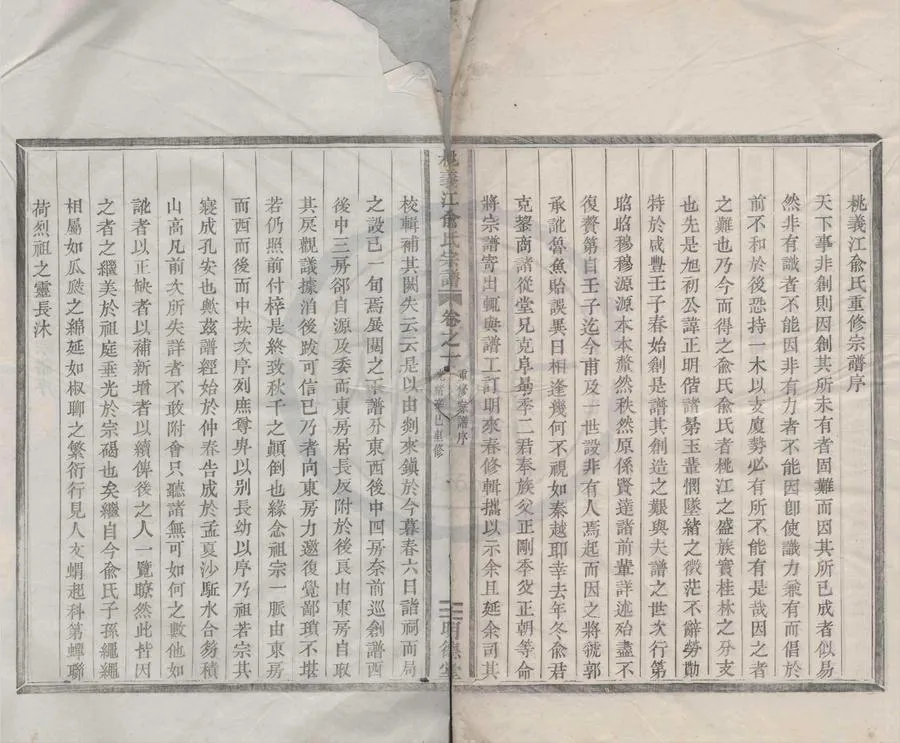 桃義江兪氏重修宗譜序
天下事非創則因創其所未有者固難而因其所已成者似易
然非有識者不能因非有力者不能因卽使識力兼有而倡於
前不和於後恐持一木以支廈勢必有所不能有是哉因之者
之難也乃今而得之兪氏兪氏者桃江之盛族實桂林之分支
也先是旭初公諱正明偕勗玉輩憫墜緒之微茫不辭勞勩
特於咸豐壬子春始創是譜其創造之艱與夫譜之世次行第
昭昭穆穆源源本本釐然秩然原係賢達諸前輩詳述殆盡不
復贅第自壬子迄今甫及一世設非有人焉起而因之將虢郭
承訛魯魚貽誤異日相逢幾何不視如秦越耶幸去年冬兪君
克鋆商諸從堂兄克阜勗季二君奉族父正剛季父正朝等命
將宗譜寄出輒與譜工訂明來春修輯攜以示余且延余司其
桃義江兪氏宗譜
卷之一
重修宗譜序
光緒辛巳重修
明德堂
校輯補其闕失云云是以由剡來鎭於今暮春六日詣祠而局
之設已一旬焉展閱之下譜分東西後中四房奈前巡創譜西
後中三房郤自源及委而東房居長反附於後良由東房自取
其戾觀議據消後跋可信已乃者向東房力邀復覺鄙瑣不堪
若仍照前付梓是終致秋千之顚倒也緣念祖宗一脈由東房
而西而後而中按次序列庶尊卑以别長幼以序乃祖若宗其
寢成孔安也歟茲譜經始於仲春告成於孟夏沙駈水合芻積
山高凡前次所失詳者不敢附會只聽諸無可如何之數他如
訛者以正缺者以補新增者以續俾後之人一覽瞭然此皆因
之者之繼美於祖庭垂光於宗碣也矣繼自今兪氏子孫繩繩
相屬如瓜瓞之綿延如椒聊之繁衍行見人文蝟起科第蟬聯
荷烈祖之靈長沐